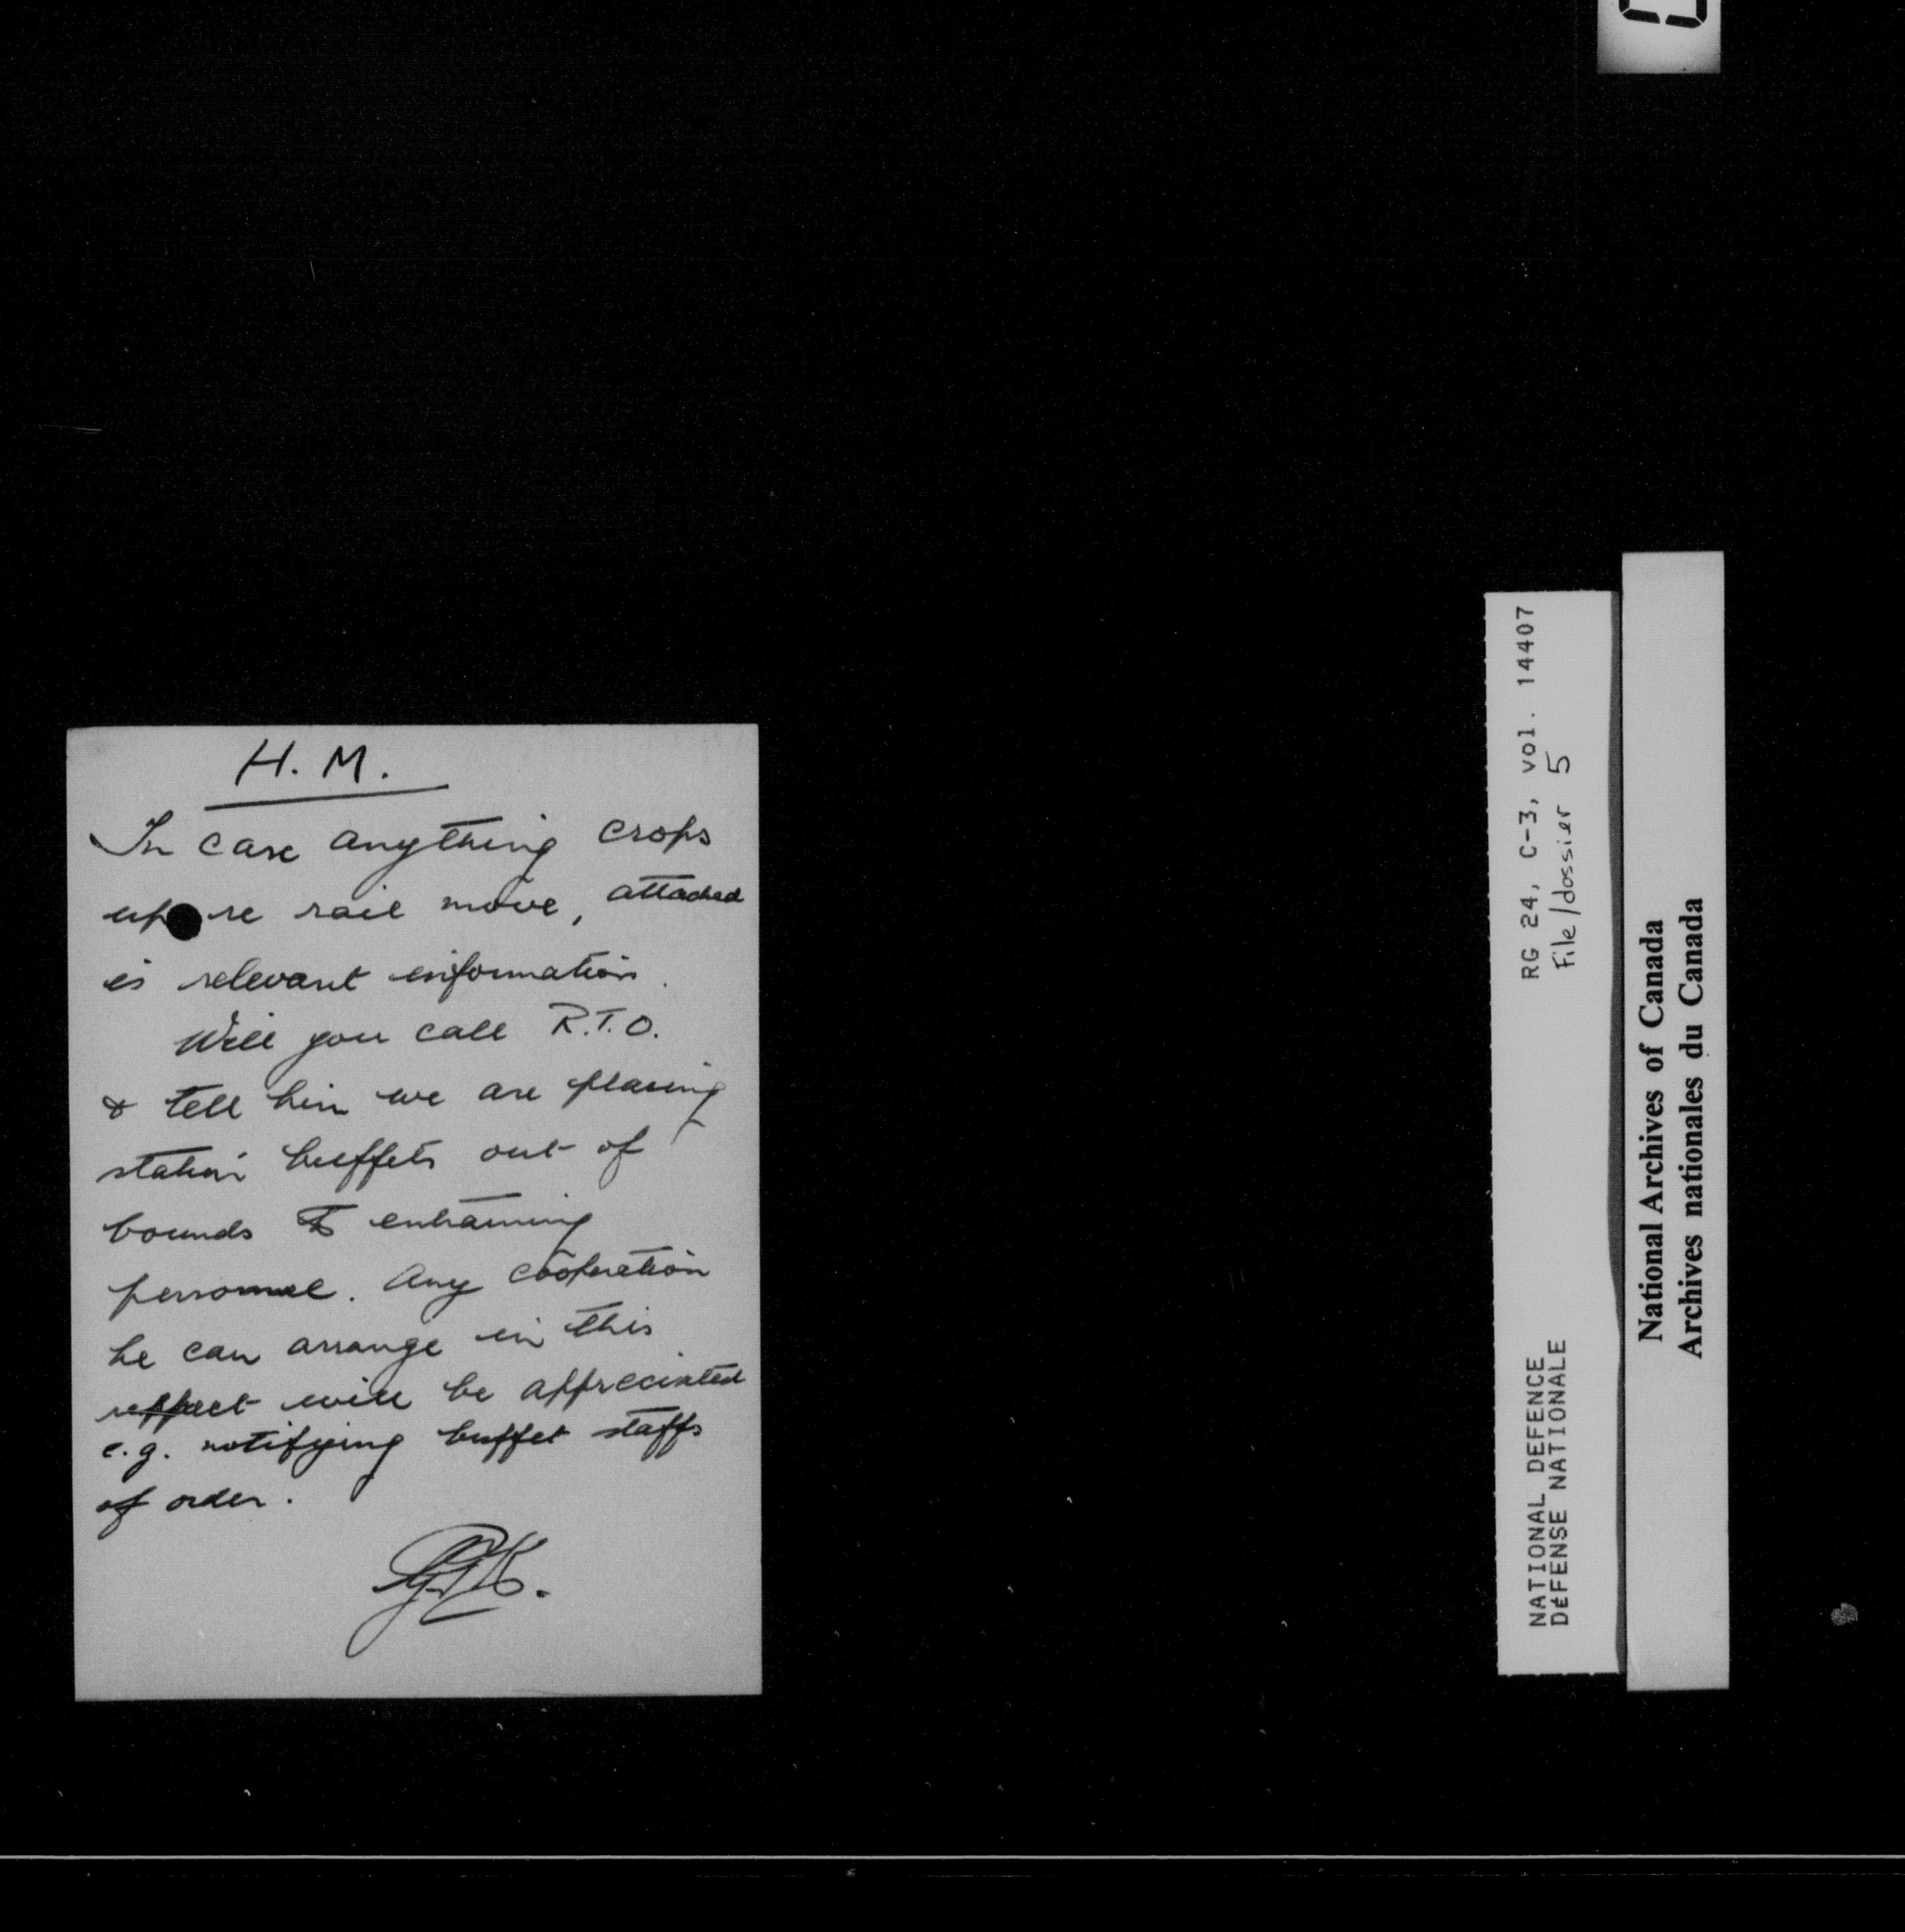 H. M.
In case anything crops
up re rail move, attached
is relevant information.
Will you call R.T.O.
& tell him we are placing
station buffets out of
bounds to entraining
personnel. Any cooperation
he can arrange in this
respect will be appreciated
e.g. notifying buffet staffs
of order.
RG 24, C-3, vol. 14407
File/dossier 5
NATIONAL DEFENCE
DÉFENSE NATIONALE
National Archives of Canada
Archives nationales du Canada